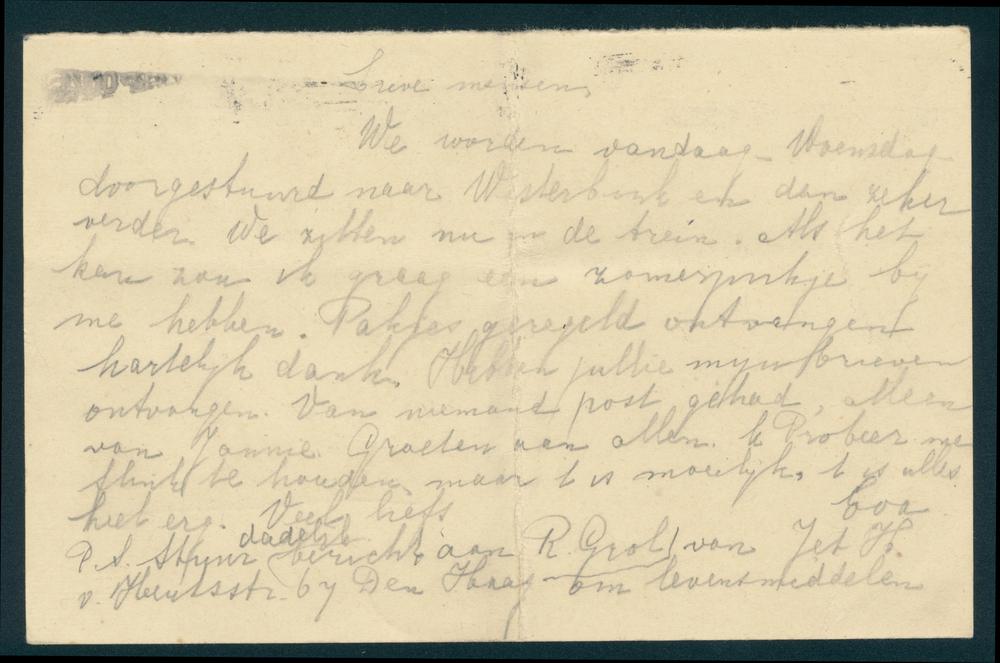 Lieve mensen,
We worden vandaag Woensdag
doorgestuurd naar Westerbork en dan zeker
verder. We zitten nu in de trein. Als het
kan zou ik graag een zomerjurkje by
me hebben. Pakjes geregeld ontvangen
hartelijk dank. Hebben jullie mijn brieven
ontvangen. Van niemand post gehad, alleen
van Jannie. Groeten aan allen. Ik Probeer me
flink te houden, maar t is moeilijk, t is alles
heel erg. Veel liefs Eva
P.S. Stuur dadelijk bericht aan R. Grol van Jet H.
v. Heutsstr. by Den Haag om levensmiddelen